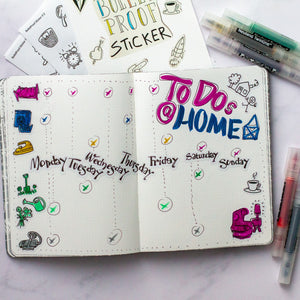 BULLET
PROOF
STICKER
TO DOs
@HOME
Monday Tuesday Wednesday Thursday Friday Saturday Sunday